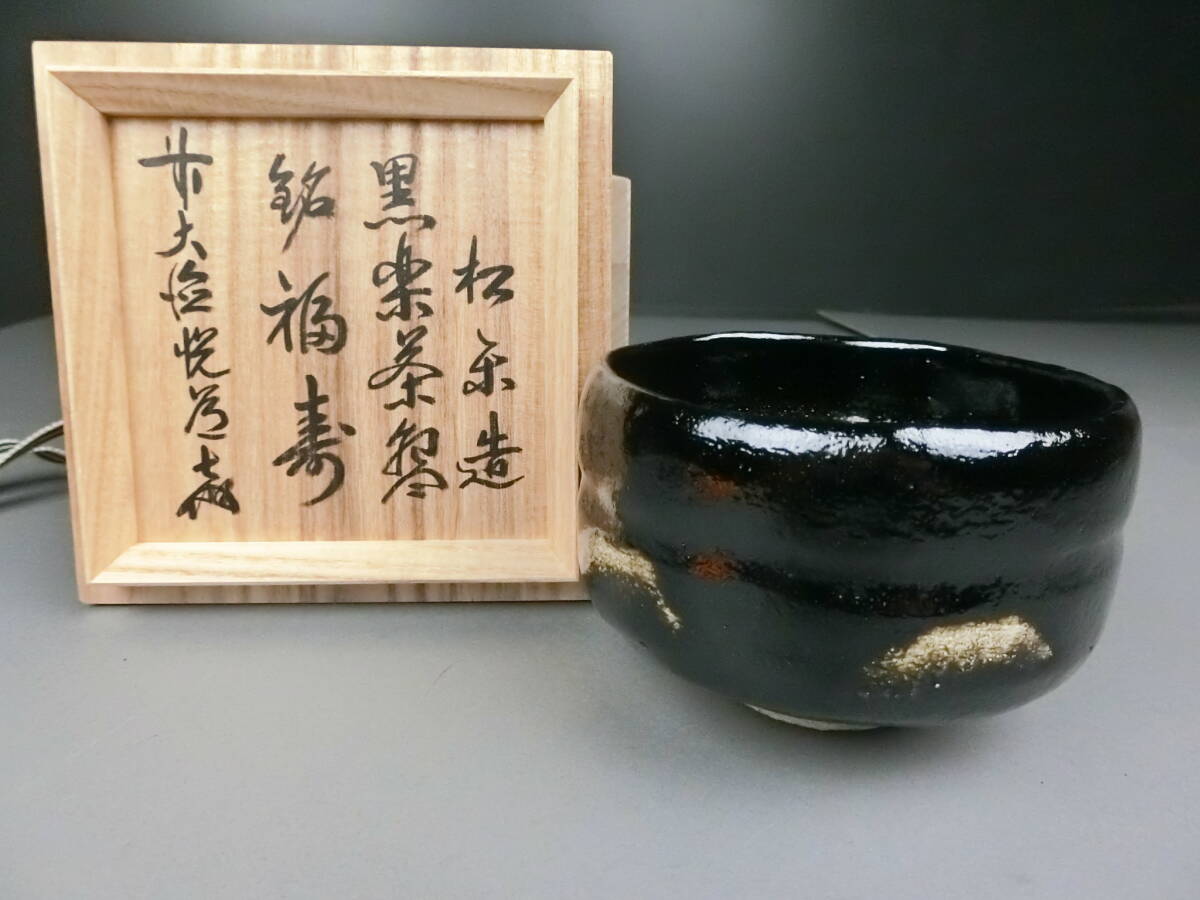 松楽造
黒楽茶碗
銘 福寿
前大徳悦道